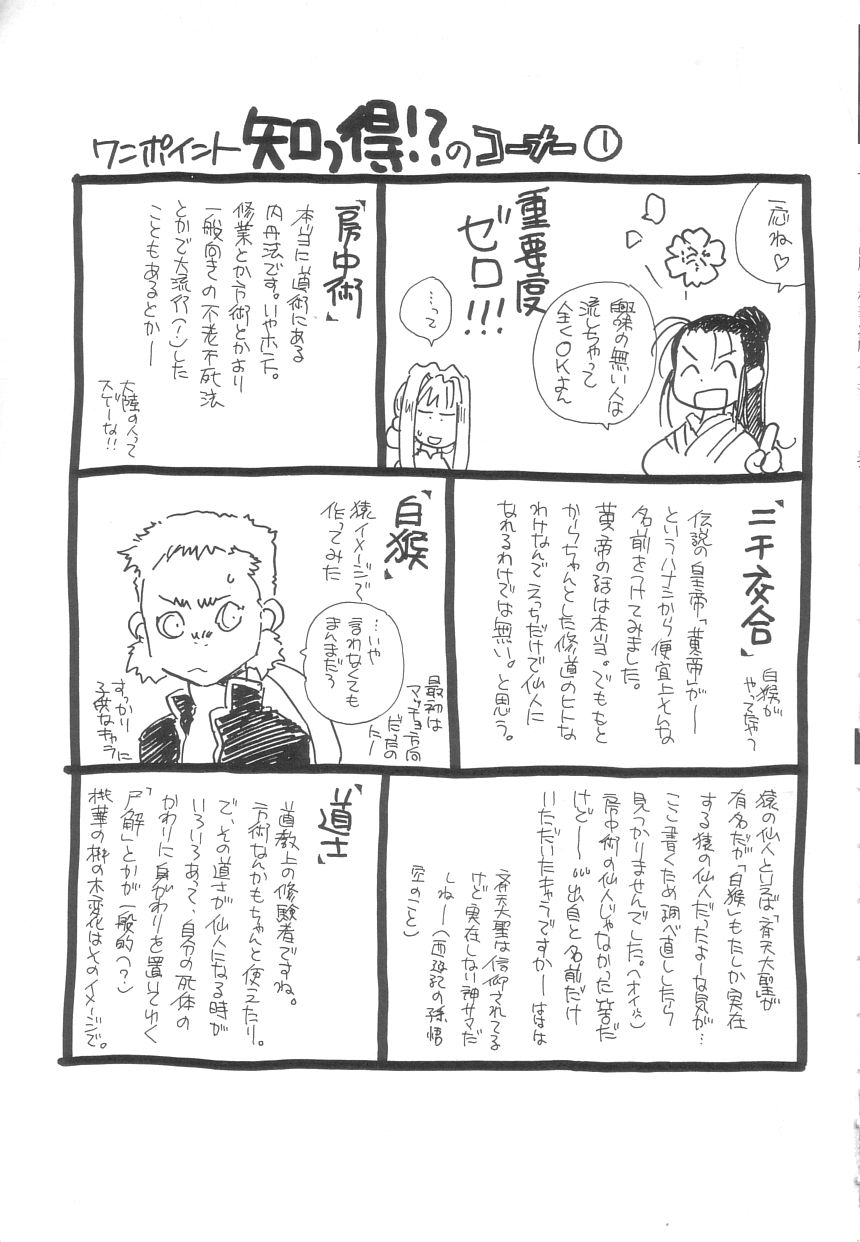 ワンポイント 知っ得!?のコーナー ①
一応ね♡
重要度
ゼロ!!!
興味の無い人は
流しちゃって
全くOKよん
…って
「房中術」
本当に道術にある
内丹法です。いやホント。
修業とか方術とかより
一般向きの不老不死法
とかで大流行(?)した
こともあるとかー
大陸の人って
スゲーな!!
「二千交合」
白猴が
やってたやつ
伝説の皇帝「黄帝」がー
というハナシから便宜上そんな
名前をつけてみました。
黄帝の話は本当。でももと
からちゃんとした修道のヒトな
わけなんでえっちだけで仙人に
なれるわけでは無い。と思う。
「白猴」
猿イメージで
作ってみた
…いや
言わなくても
まんまだろ
最初は
マッチョ方向
だったの
だー
すっかり
子供なキャラに
猿の仙人といえば「斉天大聖」が
有名だが「白猴」もたしか実在
する猿の仙人だったよーな気が…
ここ書くため調べ直ししたら
見つかりませんでした。(オイ)
房中術の仙人じゃなかった筈だ
けどー…出自と名前だけ
いただいたキャラですかーははは
斉天大聖は信仰されてる
けど実在しない神サマだ
しねー(西遊記の孫悟
空のこと)
「道士」
道教上の修験者ですね。
方術なんかもちゃんと使えたり。
で、その道さが仙人になる時が
いろいろあって、自分の死体の
かわりに身がわりを置いてゆく
「尸解」とかが一般的(?)
桃華の木変化はそのイメージで。